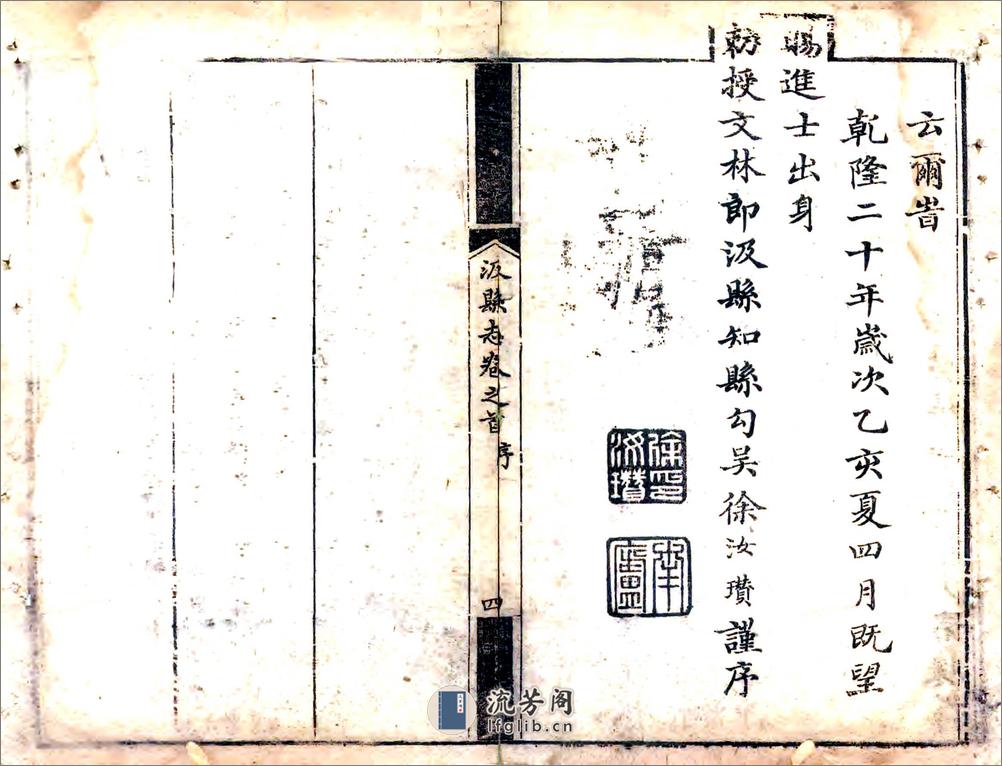 云爾旹
乾隆二十年歲次乙亥夏四月既望
賜進士出身
勅授文林郎汲縣知縣勾吳徐汝瓚謹序
徐印汝瓚
汲縣志卷之首 序 四
流芳阁
lfglib.cn